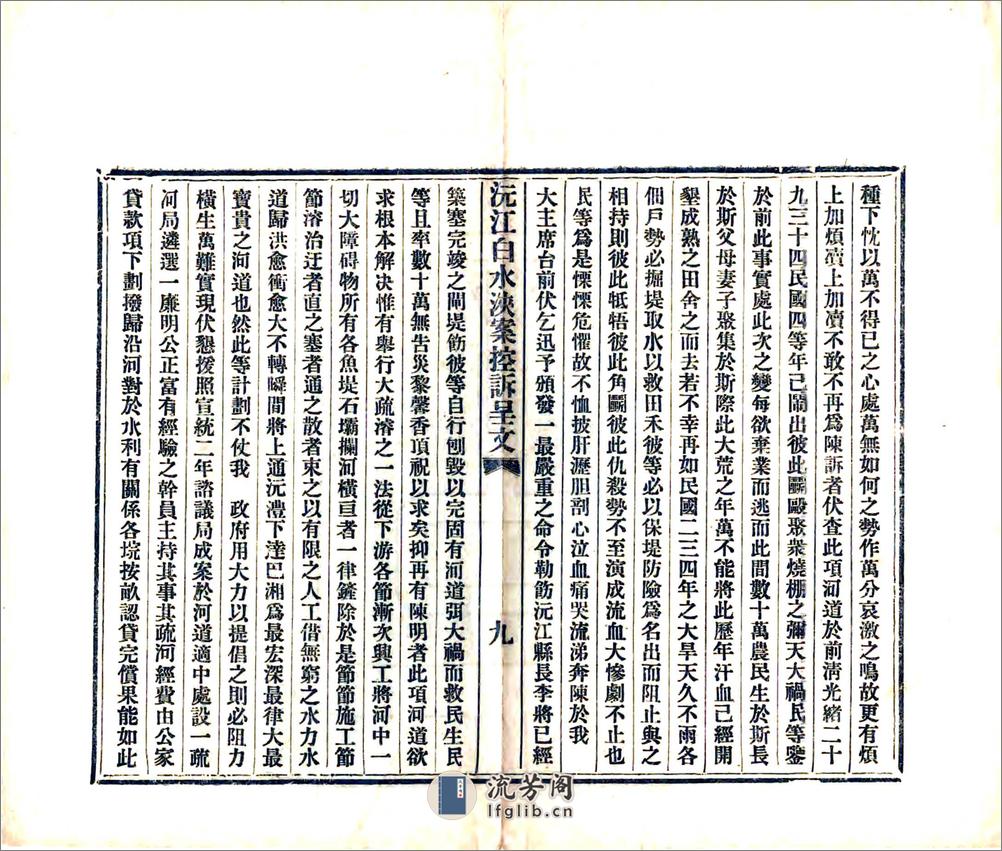 種下忱以萬不得已之心處萬無如何之勢作萬分哀激之鳴故更有煩
上加煩瀆上加瀆不敢不再爲陳訴者伏查此項河道於前淸光緒二十
九三十四民國四等年已鬧出彼此鬭毆聚衆燒棚之彌天大禍民等鑒
於前此事實處此次之變每欲棄業而逃而此間數十萬農民生於斯長
於斯父母妻子聚集於斯際此大荒之年萬不能將此歷年汗血已經開
墾成熟之田舍之而去若不幸再如民國二三四年之大旱天久不雨各
佃戶勢必掘堤取水以救田禾彼等必以保堤防險爲名出而阻止與之
相持則彼此牴牾彼此角鬭彼此仇殺勢不至演成流血大慘劇不止也
民等爲是慄慄危懼故不恤披肝瀝胆剖心泣血痛哭流涕奔陳於我
大主席台前伏乞迅予頒發一最嚴重之命令勒飭沅江縣長李將已經
沅江白水浹案控訴呈文
九
築塞完竣之閘堤飭彼等自行刨毀以完固有河道弭大禍而救民生民
等且率數十萬無告災黎馨香頂祝以求矣抑再有陳明者此項河道欲
求根本解决惟有舉行大疏濬之一法從下游各節漸次興工將河中一
切大障碍物所有各魚堤石壩攔河橫亘者一律鏟除於是節節施工節
節濬治迂者直之塞者通之散者束之以有限之人工借無窮之水力水
道歸洪愈衝愈大不轉瞬間將上通沅澧下達巴湘爲最宏深最律大最
寶貴之河道也然此等計劃不仗我 政府用大力以提倡之則必阻力
橫生萬難實現伏懇援照宣統二年諮議局成案於河道適中處設一疏
河局遴選一廉明公正富有經驗之幹員主持其事其疏河經費由公家
貸款項下劃撥歸沿河對於水利有關係各垸按畝認貸完償果能如此
流芳阁
lfglib.cn